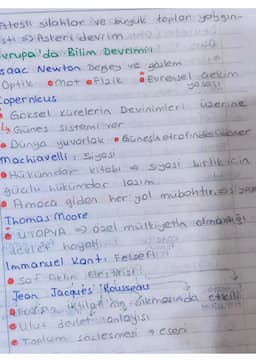 Ateşli silahlar ve büyük toplar yaygın-
ıştı => Askeri devrim
vrupa'da Bilim Devrimi
saac Newton Deney ve gözlem
Optik • mat • Fizik • Evrensel çekim
yasası
Copernicus
Göksel kürelerin Devinimleri üzerine
↳ Güneş sistemi var
• Dünya yuvarlak • Güneşin etrafında döner
machiavelli: Siyasi
• Hükümdar kitabı → siyasi birlik için
güçlü hükümdar lazım
• Amaca giden her yol mübahtır. =>
Thomas Moore
• ÜTOPYA => özel mülkiyetin olmadığı
devlet hayali
Immanuel Kant: Felsefi
• Saf Aklın Eleştirisi
Jean Jacques Rousseau
• ihtilali'nin çıkmasında etkili
• Ulus devlet anlayışı
• Toplum sözleşmesi → eseri